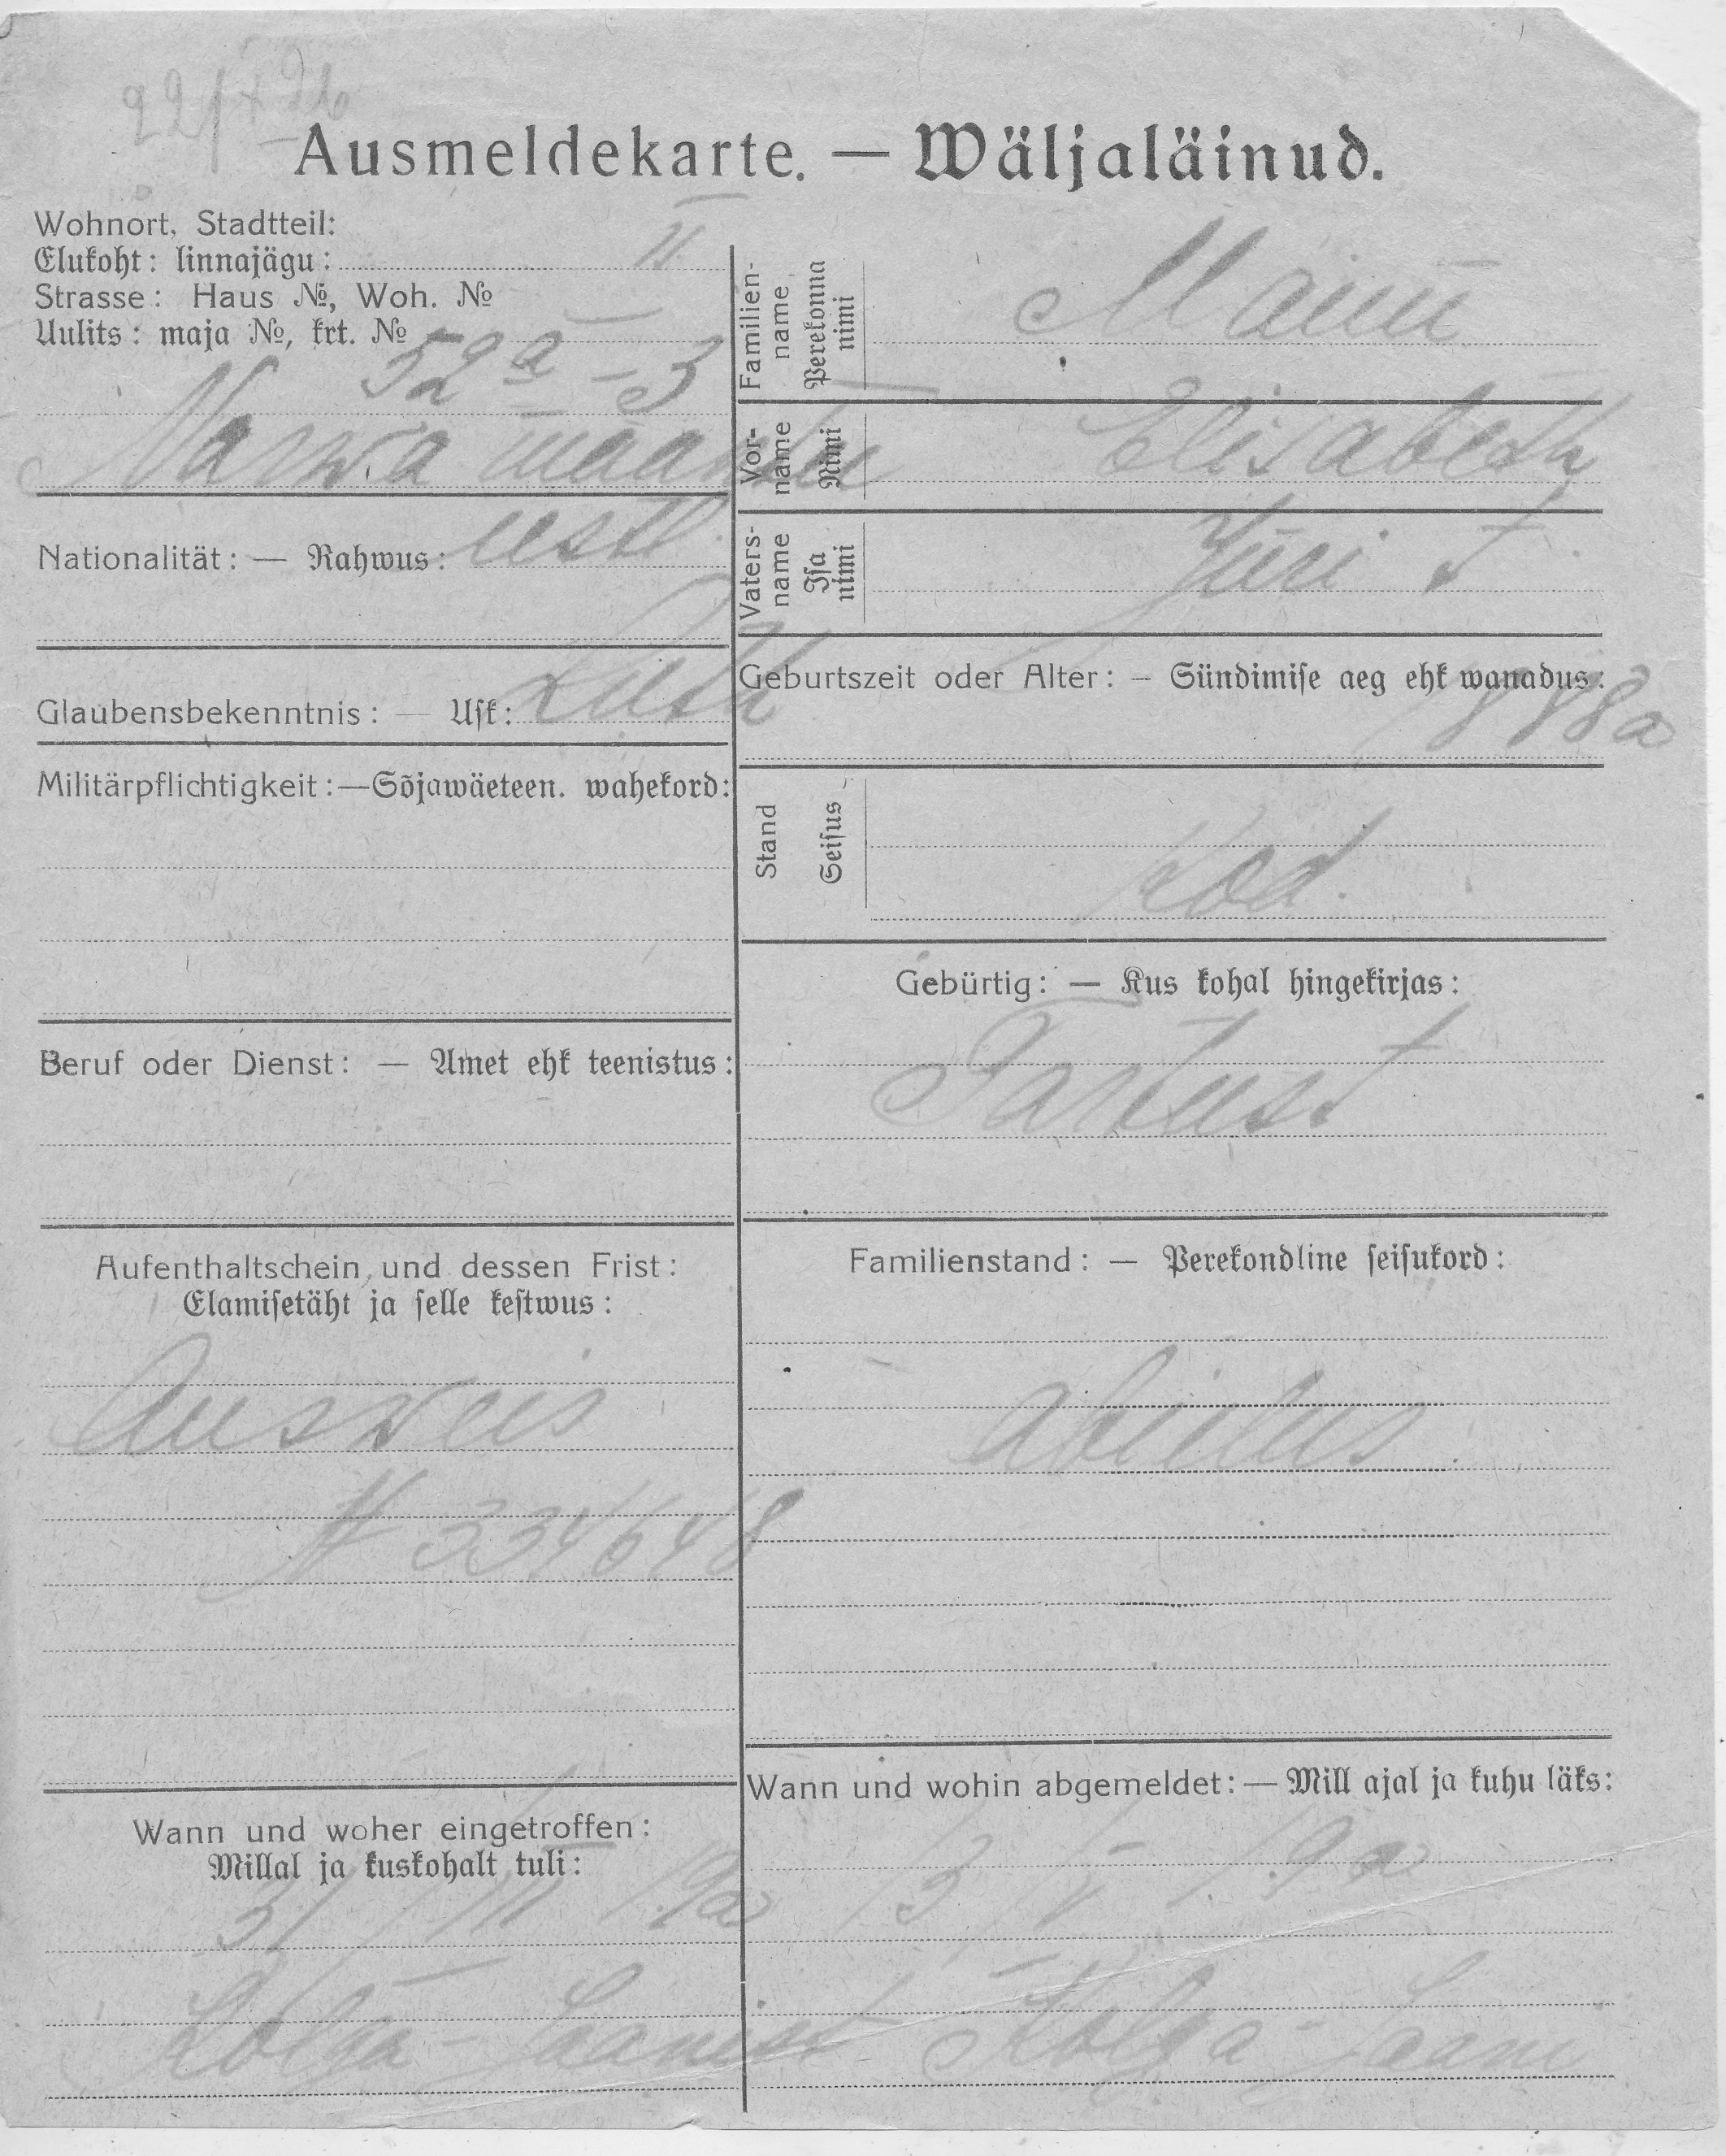 Ausmeldekarte. — Wäljaläinud.
Wohnort, Stadtteil:
Elukoht: linnajägu: II
Strasse: Haus №, Woh. №
Uulits: maja №, krt. №
52 a - 3
Narwa maantee
Nationalität: — Rahwus: eestl.
Glaubensbekenntnis: — Usk: Luth
Militärpflichtigkeit:—Sõjawäeteen. wahekord:
Beruf oder Dienst: — Amet ehk teenistus:
Aufenthaltschein und dessen Frist:
Elamisetäht ja selle kestwus:
Ausweis
№ 334648
Wann und woher eingetroffen:
Millal ja kuskohalt tuli:
31 / III 19a
Kolga-Jaanist
Familien-
name
Perekonna
nimi
Vor-
name
Nimi
Elisabeth
Vaters-
name
Isa
nimi
Jüri t.
Geburtszeit oder Alter: — Sündimise aeg ehk wanadus:
Stand
Seisus
kod.
Gebürtig: — Kus kohal hingekirjas:
Familienstand: — Perekondline seisukord:
abielus.
Wann und wohin abgemeldet: — Mill ajal ja kuhu läks:
Kolga-Jaani